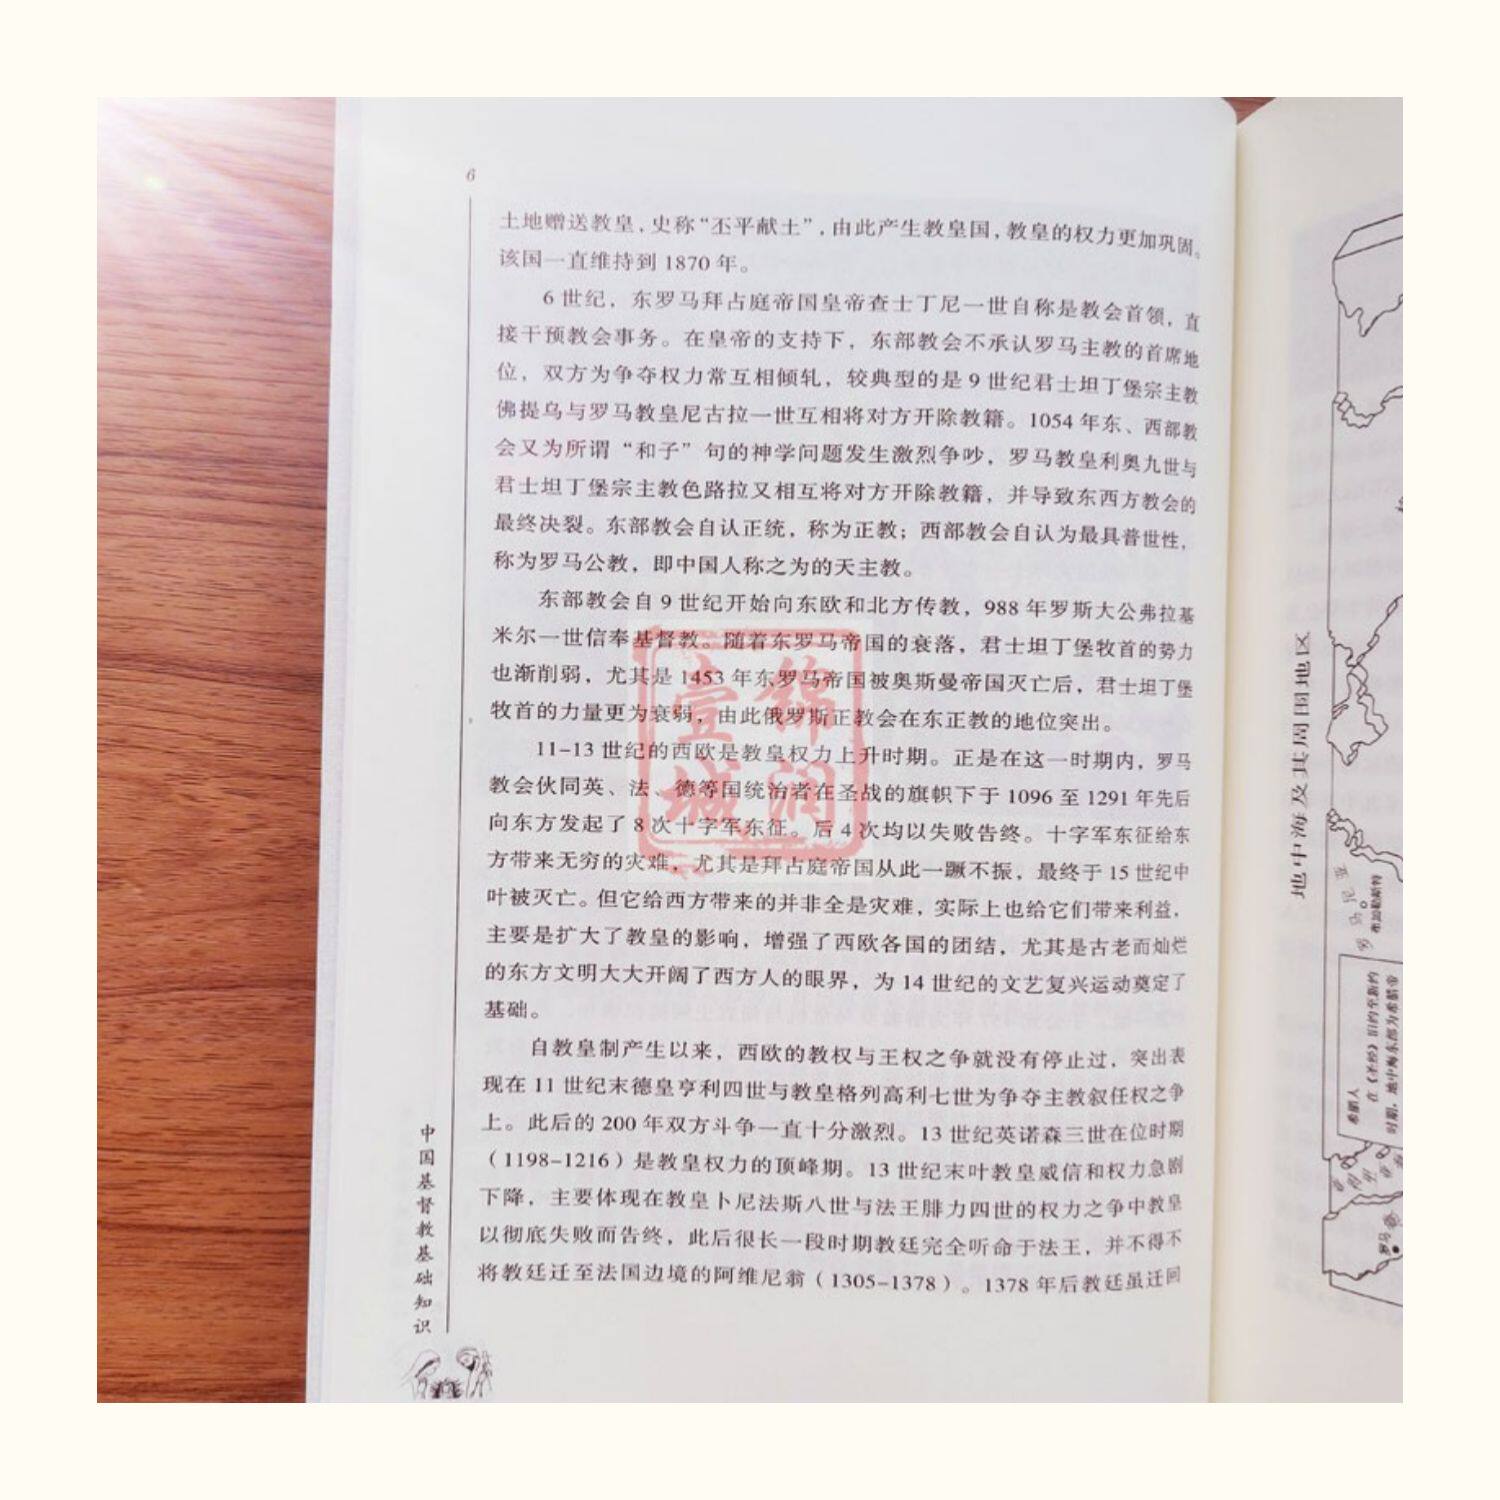 6
土地赠送教皇，史称“丕平献土”，由此产生教皇国，教皇的权力更加巩固。
该国一直维持到 1870 年。
6 世纪，东罗马拜占庭帝国皇帝查士丁尼一世自称是教会首领，直
接干预教会事务。在皇帝的支持下，东部教会不承认罗马主教的首席地
位，双方为争夺权力常互相倾轧，较典型的是 9 世纪君士坦丁堡宗主教
佛提乌与罗马教皇尼古拉一世互相将对方开除教籍。1054 年东、西部教
会又为所谓“和子”句的神学问题发生激烈争吵，罗马教皇利奥九世与
君士坦丁堡宗主教色路拉又相互将对方开除教籍，并导致东西方教会的
最终决裂。东部教会自认正统，称为正教；西部教会自认为最具普世性，
称为罗马公教，即中国人称之为的天主教。
东部教会自 9 世纪开始向东欧和北方传教，988 年罗斯大公弗拉基
米尔一世信奉基督教。随着东罗马帝国的衰落，君士坦丁堡牧首的势力
也渐削弱，尤其是 1453 年东罗马帝国被奥斯曼帝国灭亡后，君士坦丁堡
牧首的力量更为衰弱，由此俄罗斯正教会在东正教的地位突出。
11–13 世纪的西欧是教皇权力上升时期。正是在这一时期内，罗马
教会伙同英、法、德等国统治者在圣战的旗帜下于 1096 至 1291 年先后
向东方发起了 8 次十字军东征。后 4 次均以失败告终。十字军东征给东
方带来无穷的灾难，尤其是拜占庭帝国从此一蹶不振，最终于 15 世纪中
叶被灭亡。但它给西方带来的并非全是灾难，实际上也给它们带来利益，
主要是扩大了教皇的影响，增强了西欧各国的团结，尤其是古老而灿烂
的东方文明大大开阔了西方人的眼界，为 14 世纪的文艺复兴运动奠定了
基础。
自教皇制产生以来，西欧的教权与王权之争就没有停止过，突出表
现在 11 世纪末德皇亨利四世与教皇格列高利七世为争夺主教叙任权之争
上。此后的 200 年双方斗争一直十分激烈。13 世纪英诺森三世在位时期
（1198–1216）是教皇权力的顶峰期。13 世纪末叶教皇威信和权力急剧
下降，主要体现在教皇卜尼法斯八世与法王腓力四世的权力之争中教皇
以彻底失败而告终，此后很长一段时期教廷完全听命于法王，并不得不
将教廷迁至法国边境的阿维尼翁（1305–1378）。1378 年后教廷虽迁回
中国基督教基础知识
锦润
壹城
地中海及其周围地区
罗马尼亚
布加勒斯特
希腊人
在《圣经》旧约至新约
时期，地中海东部为希腊帝
罗马